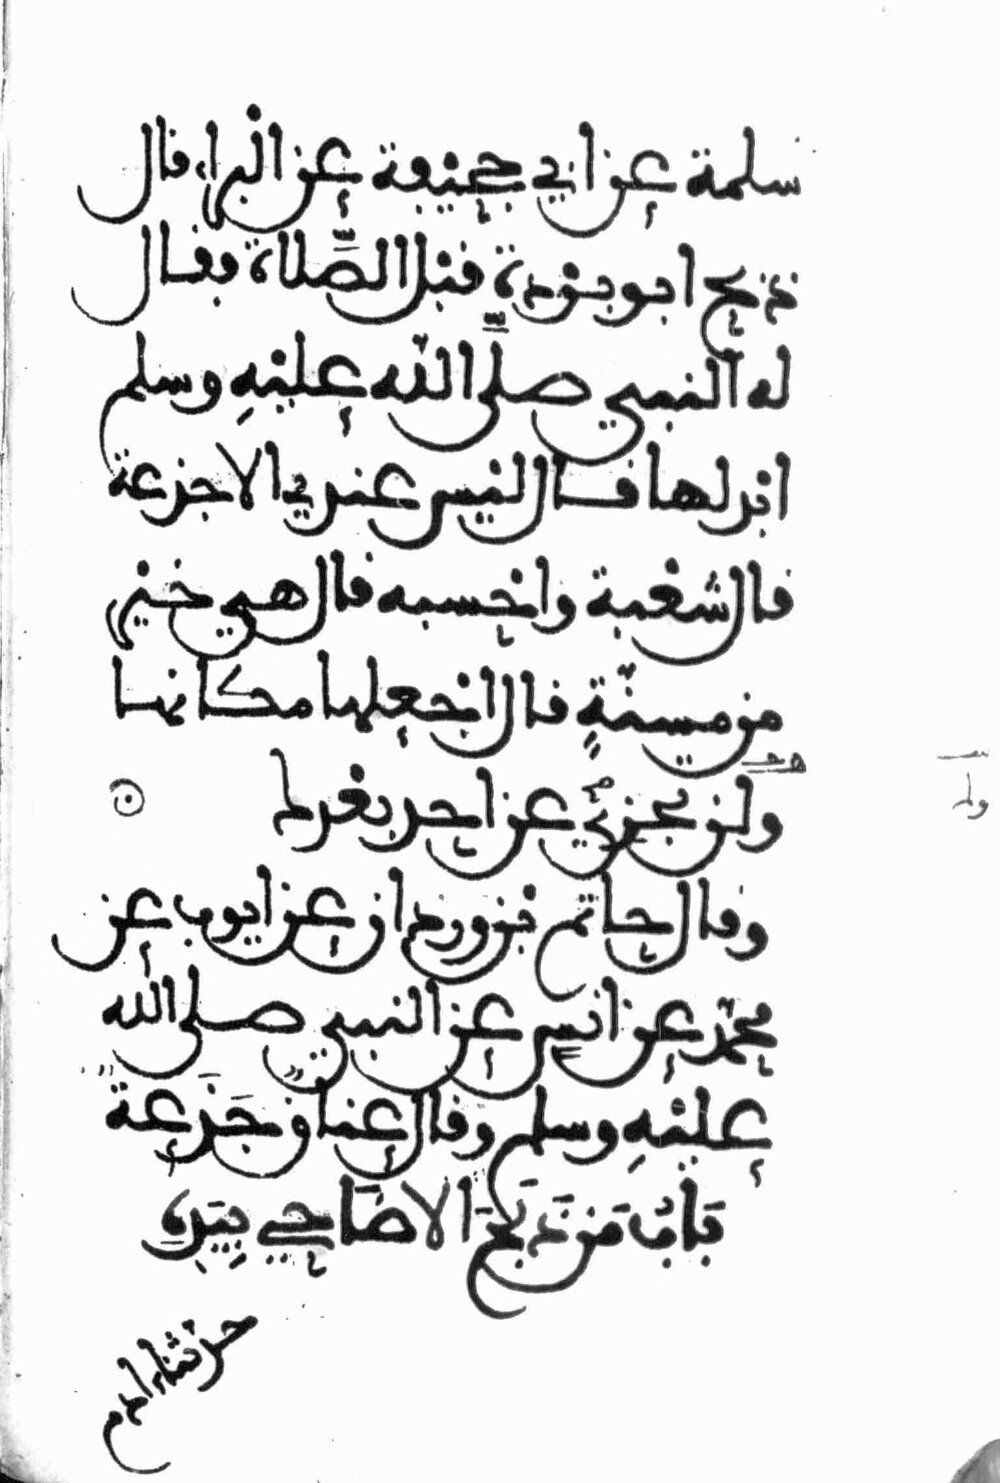 سلمة عن ابي جحيفة عن البراء قال
ذبح ابو بردة قبل الصّلاة فقال
له النبي صلّى اللّه عليْهِ وسلم
ابدلها قال ليْس عندي الا جذعة
قال شعْبة واحْسبه قال هي خيْر
من مسنّةٍ قال اجْعلها مكانها
ولن تجزي عن احد بعْدك
وقال حاتم بْن وردان عن ايوب عن
محمّد عن انسٍ عن النبي صلى الله
عليْهِ وسلم وقال عناق جَذَعة
بَابُ مَن ذَبَحَ الاضَاحي بِيَدِهِ
حدثنا ادم